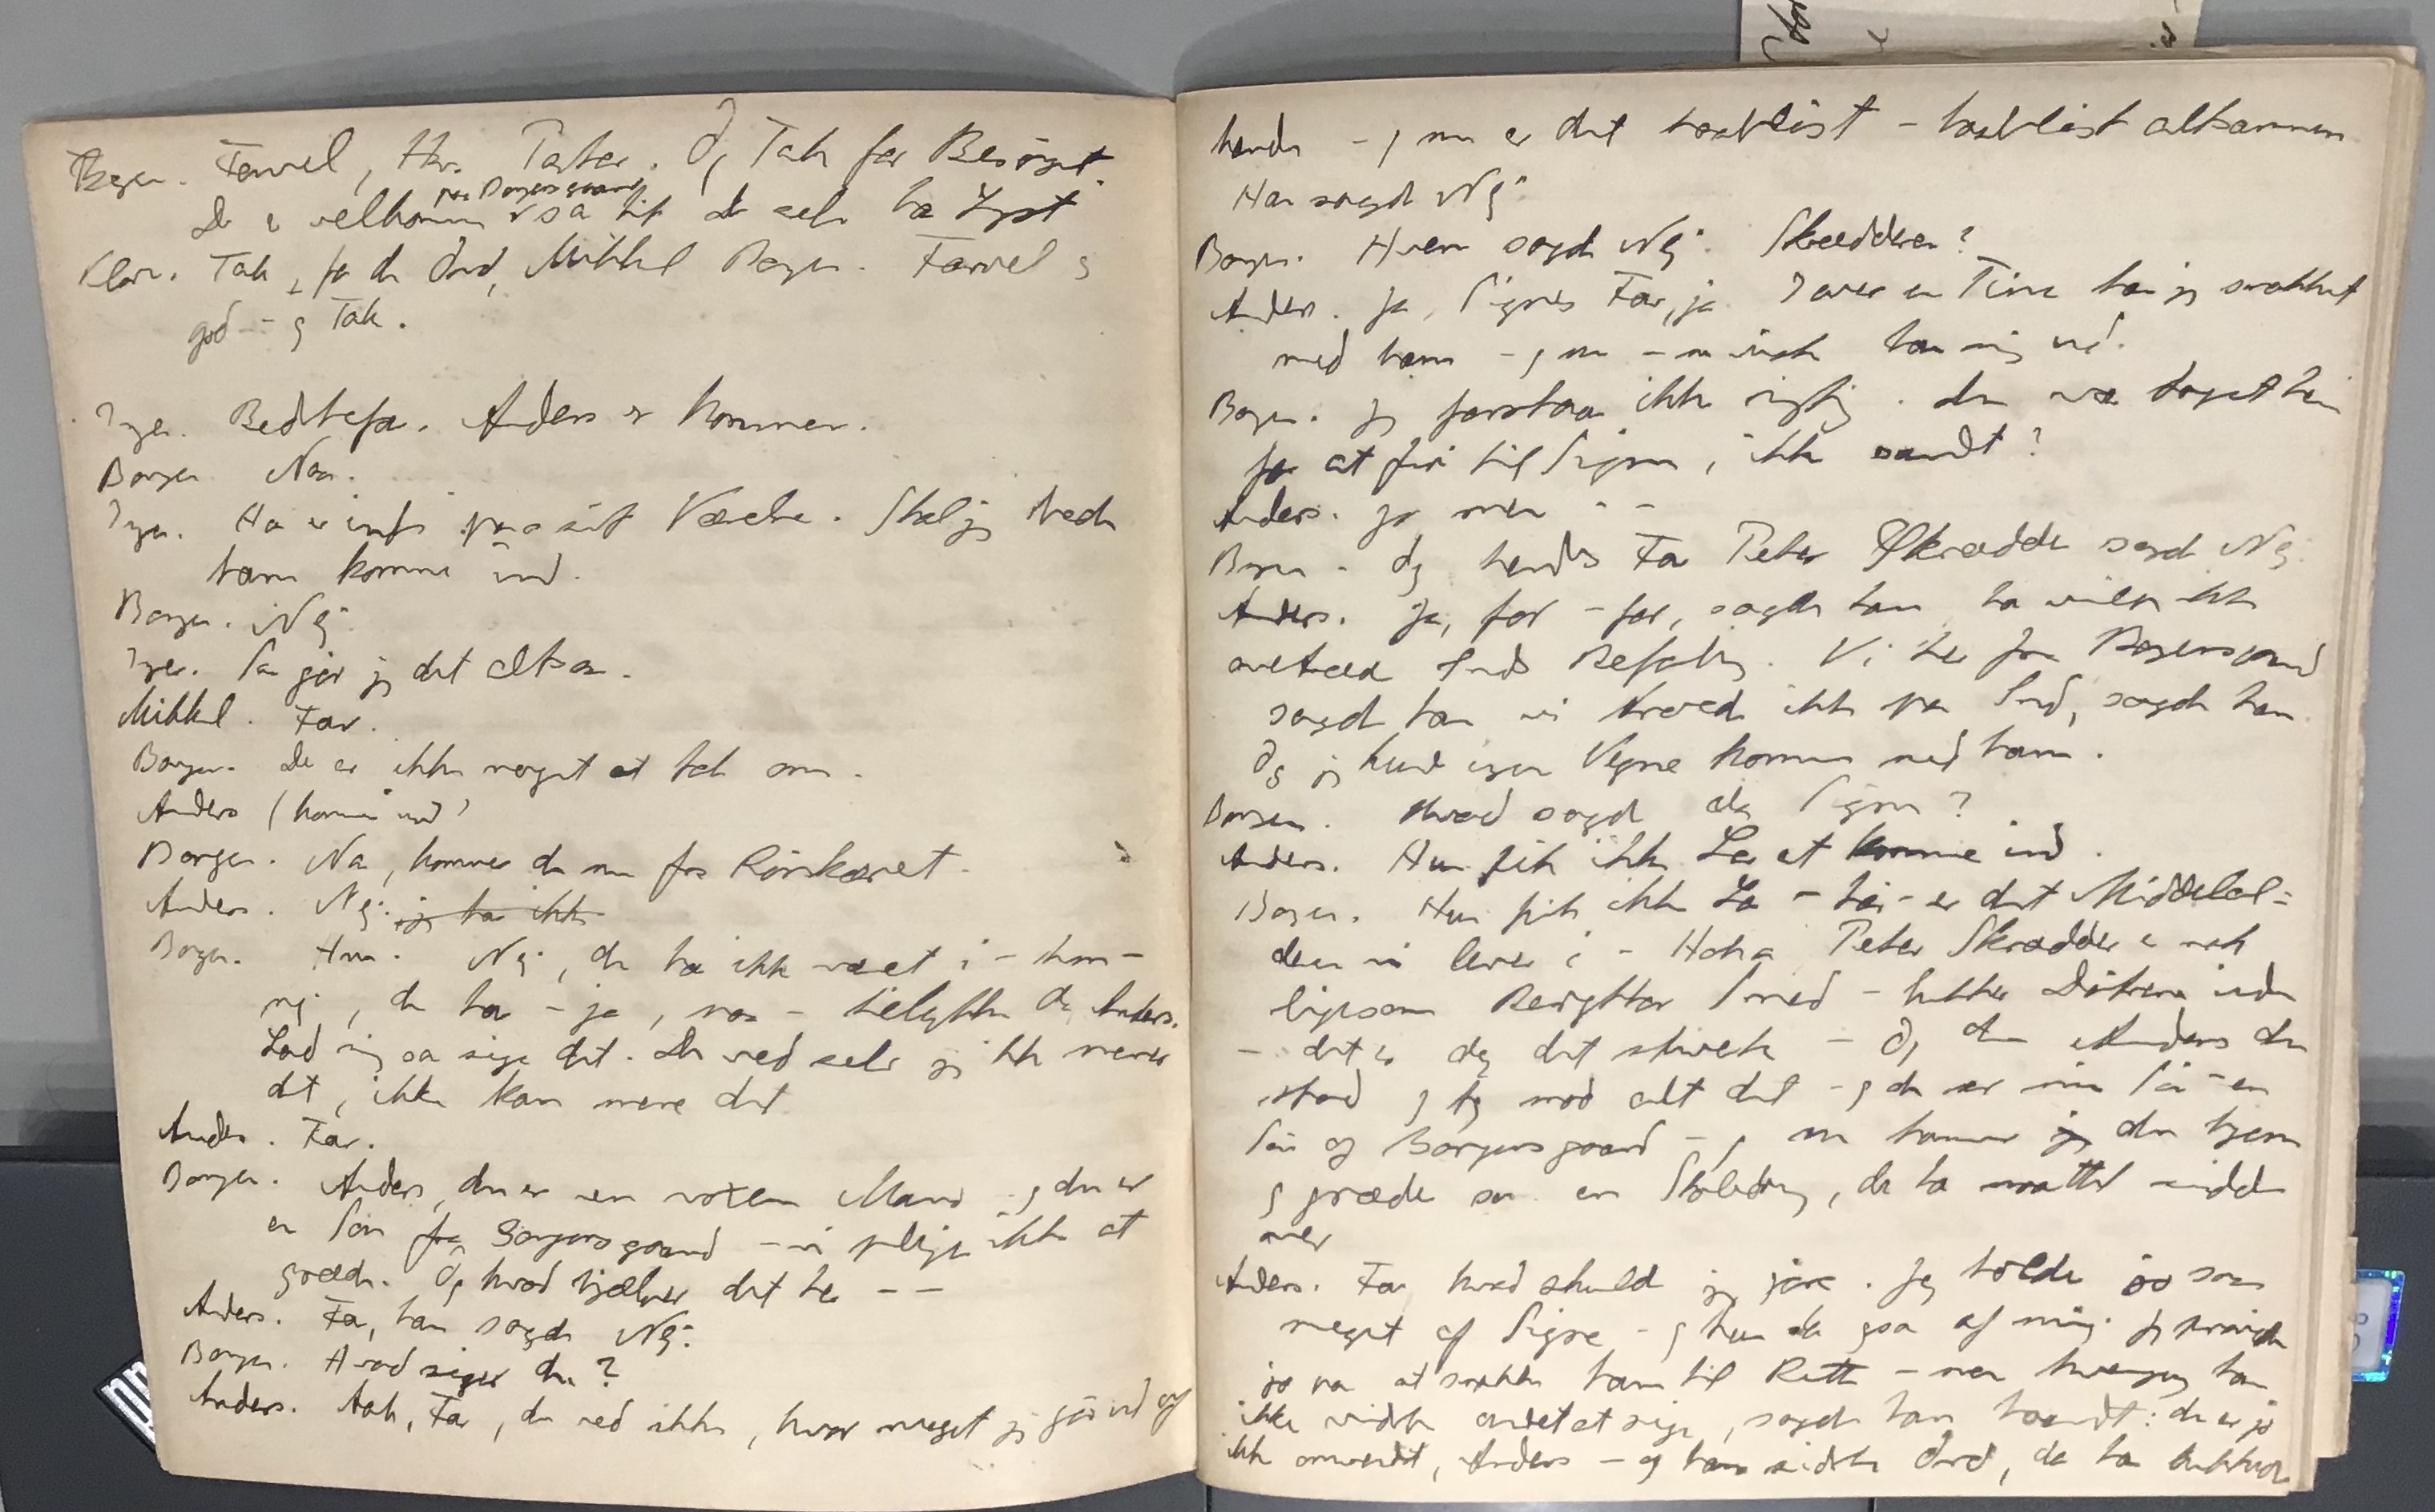 Borgen. Farvel, Hr. Pastor. Og Tak for Besøget.
paa Borgensgaard
De er velkommen saa tit De selv har Lyst
Klare. Tak for de Ord, Mikkel Borgen. Farvel og
god - og Tak.
Inger. Bedstefar. Anders er kommen.
Borgen. Naa.
Inger. Han er inde paa sit Værelse. Skal jeg bede
ham komme ind.
Borgen. Nej.
Inger. Saa gør jeg det altsaa.
Mikkel. Far.
Borgen. Der er ikke noget at tale om.
Anders (kommer ind)
Borgen. Naa, kommer du nu fra Rørkæret.
Anders. Nej. jeg har ikke
Borgen. Hm. Nej, du har ikke været i - hm -
nej, du har - ja, naa - tillykke da Anders.
Lad mig saa sige det. Du ved selv jeg ikke mener
det, ikke kan mene det
Anders. Far.
Borgen. Anders, du er en voxen Mand - og du er
en Søn fra Borgensgaard - vi plejer ikke at
græde. Og hvad hjælper det her - -
Anders. Far, han sagde Nej.
Borgen. Hvad siger du?
Anders. Aah, Far, du ved ikke, hvor meget jeg gør ud af
hende - og nu er det haabløst - haabløst altsammen
Han sagde Nej.
Borgen. Hvem sagde Nej. Skrædderen?
Anders. Ja, Signes Far, ja. I over en Time har jeg snakket
med ham - og nu - nu viste han mig ud.
Borgen. Jeg forstaar ikke rigtig. Du var taget hen
for at fri til Signe, ikke sandt?
Anders. Jo men - -
Borgen. Og hendes Far Peter Skrædder sagde Nej.
Anders. Ja, for - for, sagde han, han vilde ikke
overtræde Guds Befaling. Vi her fra Borgensgaard
sagde han vi troede ikke paa Gud, sagde han.
Og jeg kunde ingen Vegne komme med ham.
Borgen. Hvad sagde da Signe?
Anders. Hun fik ikke Lov at komme ind.
Borgen. Hun fik ikke Lov - er det Middelal=
deren vi lever i - Haha Peter Skrædder er nok
ligesom Smed - lukker Døtrene inde
- det er dog det stiveste - Og du Anders du
stod og tog mod alt det - og du er min Søn - en
Søn af Borgensgaard - og nu kommer du hjem
og græder som en Skoledreng, der har maattet sidde
over
Anders. Far hvad skulde jeg gøre. Jeg holder jo saa
meget af Signe - og hun da ogsaa af mig. Jeg prøvede
jo paa at snakke ham til Rette - men hvergang han
ikke vidste andet at sige, sagde han haardt: du er jo
ikke omvendt, Anders - og hans sidste Ord, da han lukkede